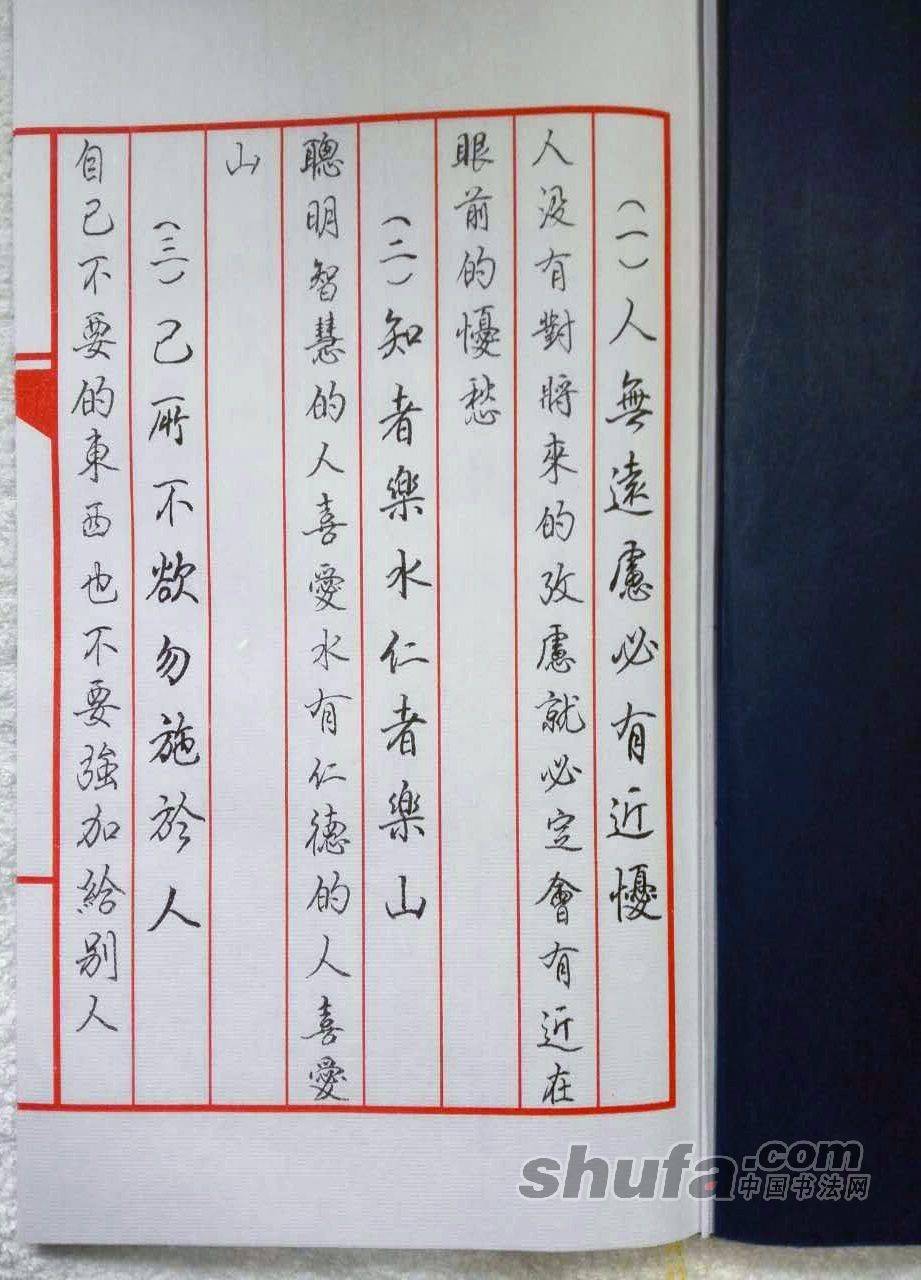 （一）人無遠慮必有近憂
人没有對將來的攷慮就必定會有近在
眼前的憂愁
（二）知者樂水仁者樂山
聰明智慧的人喜愛水有仁德的人喜愛
山
（三）己所不欲勿施於人
自己不要的東西也不要強加給别人
shufa.com
中国书法网